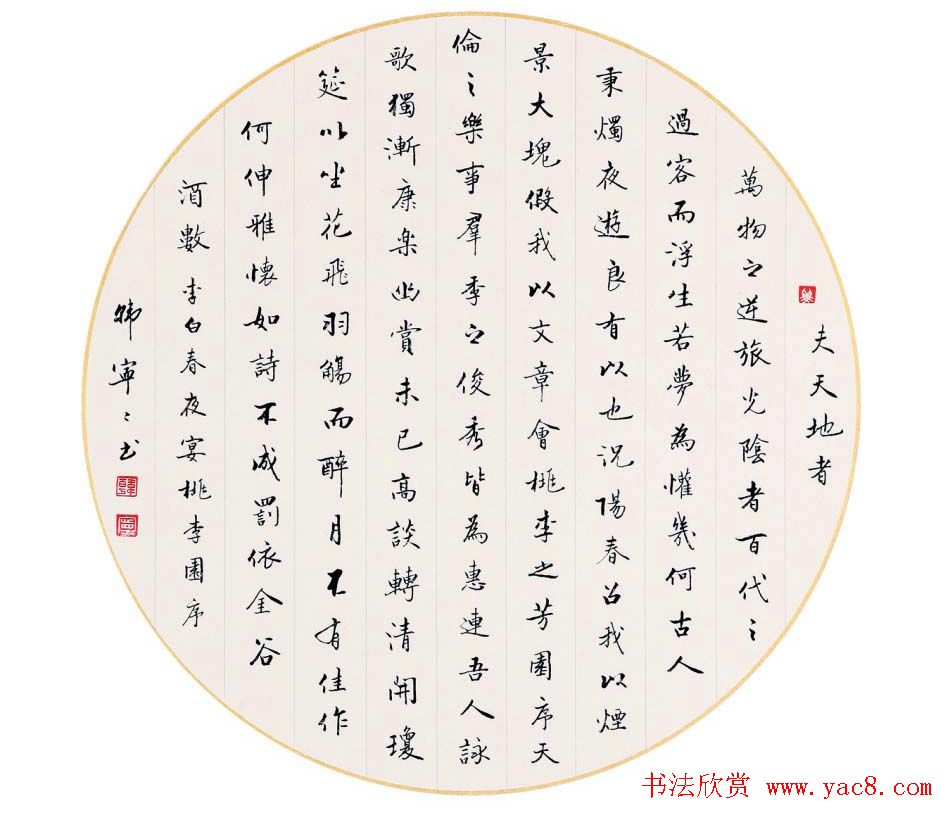 夫天地者
萬物之逆旅光陰者百代之
過客而浮生若夢為懽幾何古人
秉燭夜遊良有以也況陽春召我以煙
景大塊假我以文章會桃李之芳園序天
倫之樂事羣季之俊秀皆為惠連吾人詠
歌獨漸康樂幽賞未已高談轉清開瓊
筵以坐花飛羽觴而醉月不有佳作
何伸雅懷如詩不成罰依金谷
酒數 李白春夜宴桃李園序
韓寧々書
书法欣赏 www.yac8.com